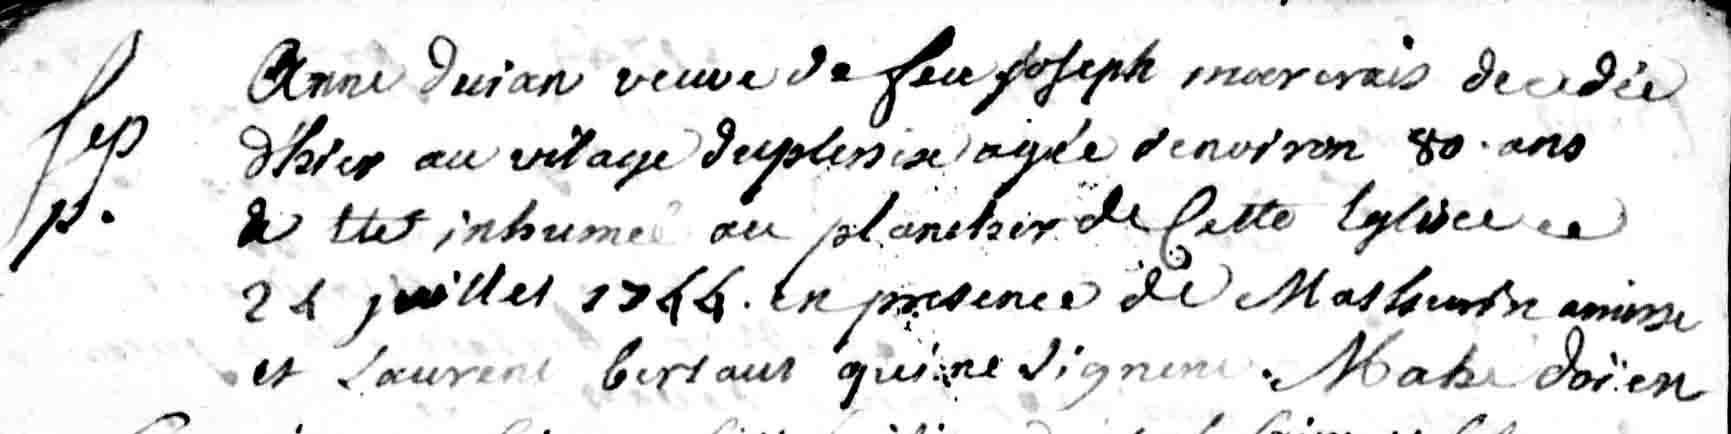 sep
p.
Anne Duian veuve de feu joseph marcrais decedée
d'hier au vilage duplessix agée d'environ 80. ans
a eté inhumeé au plancher de Cette Eglise ce
24 juillet 1744. en presence de Mathurin
et Laurent bertaut qui ne signent. Mahé doïen